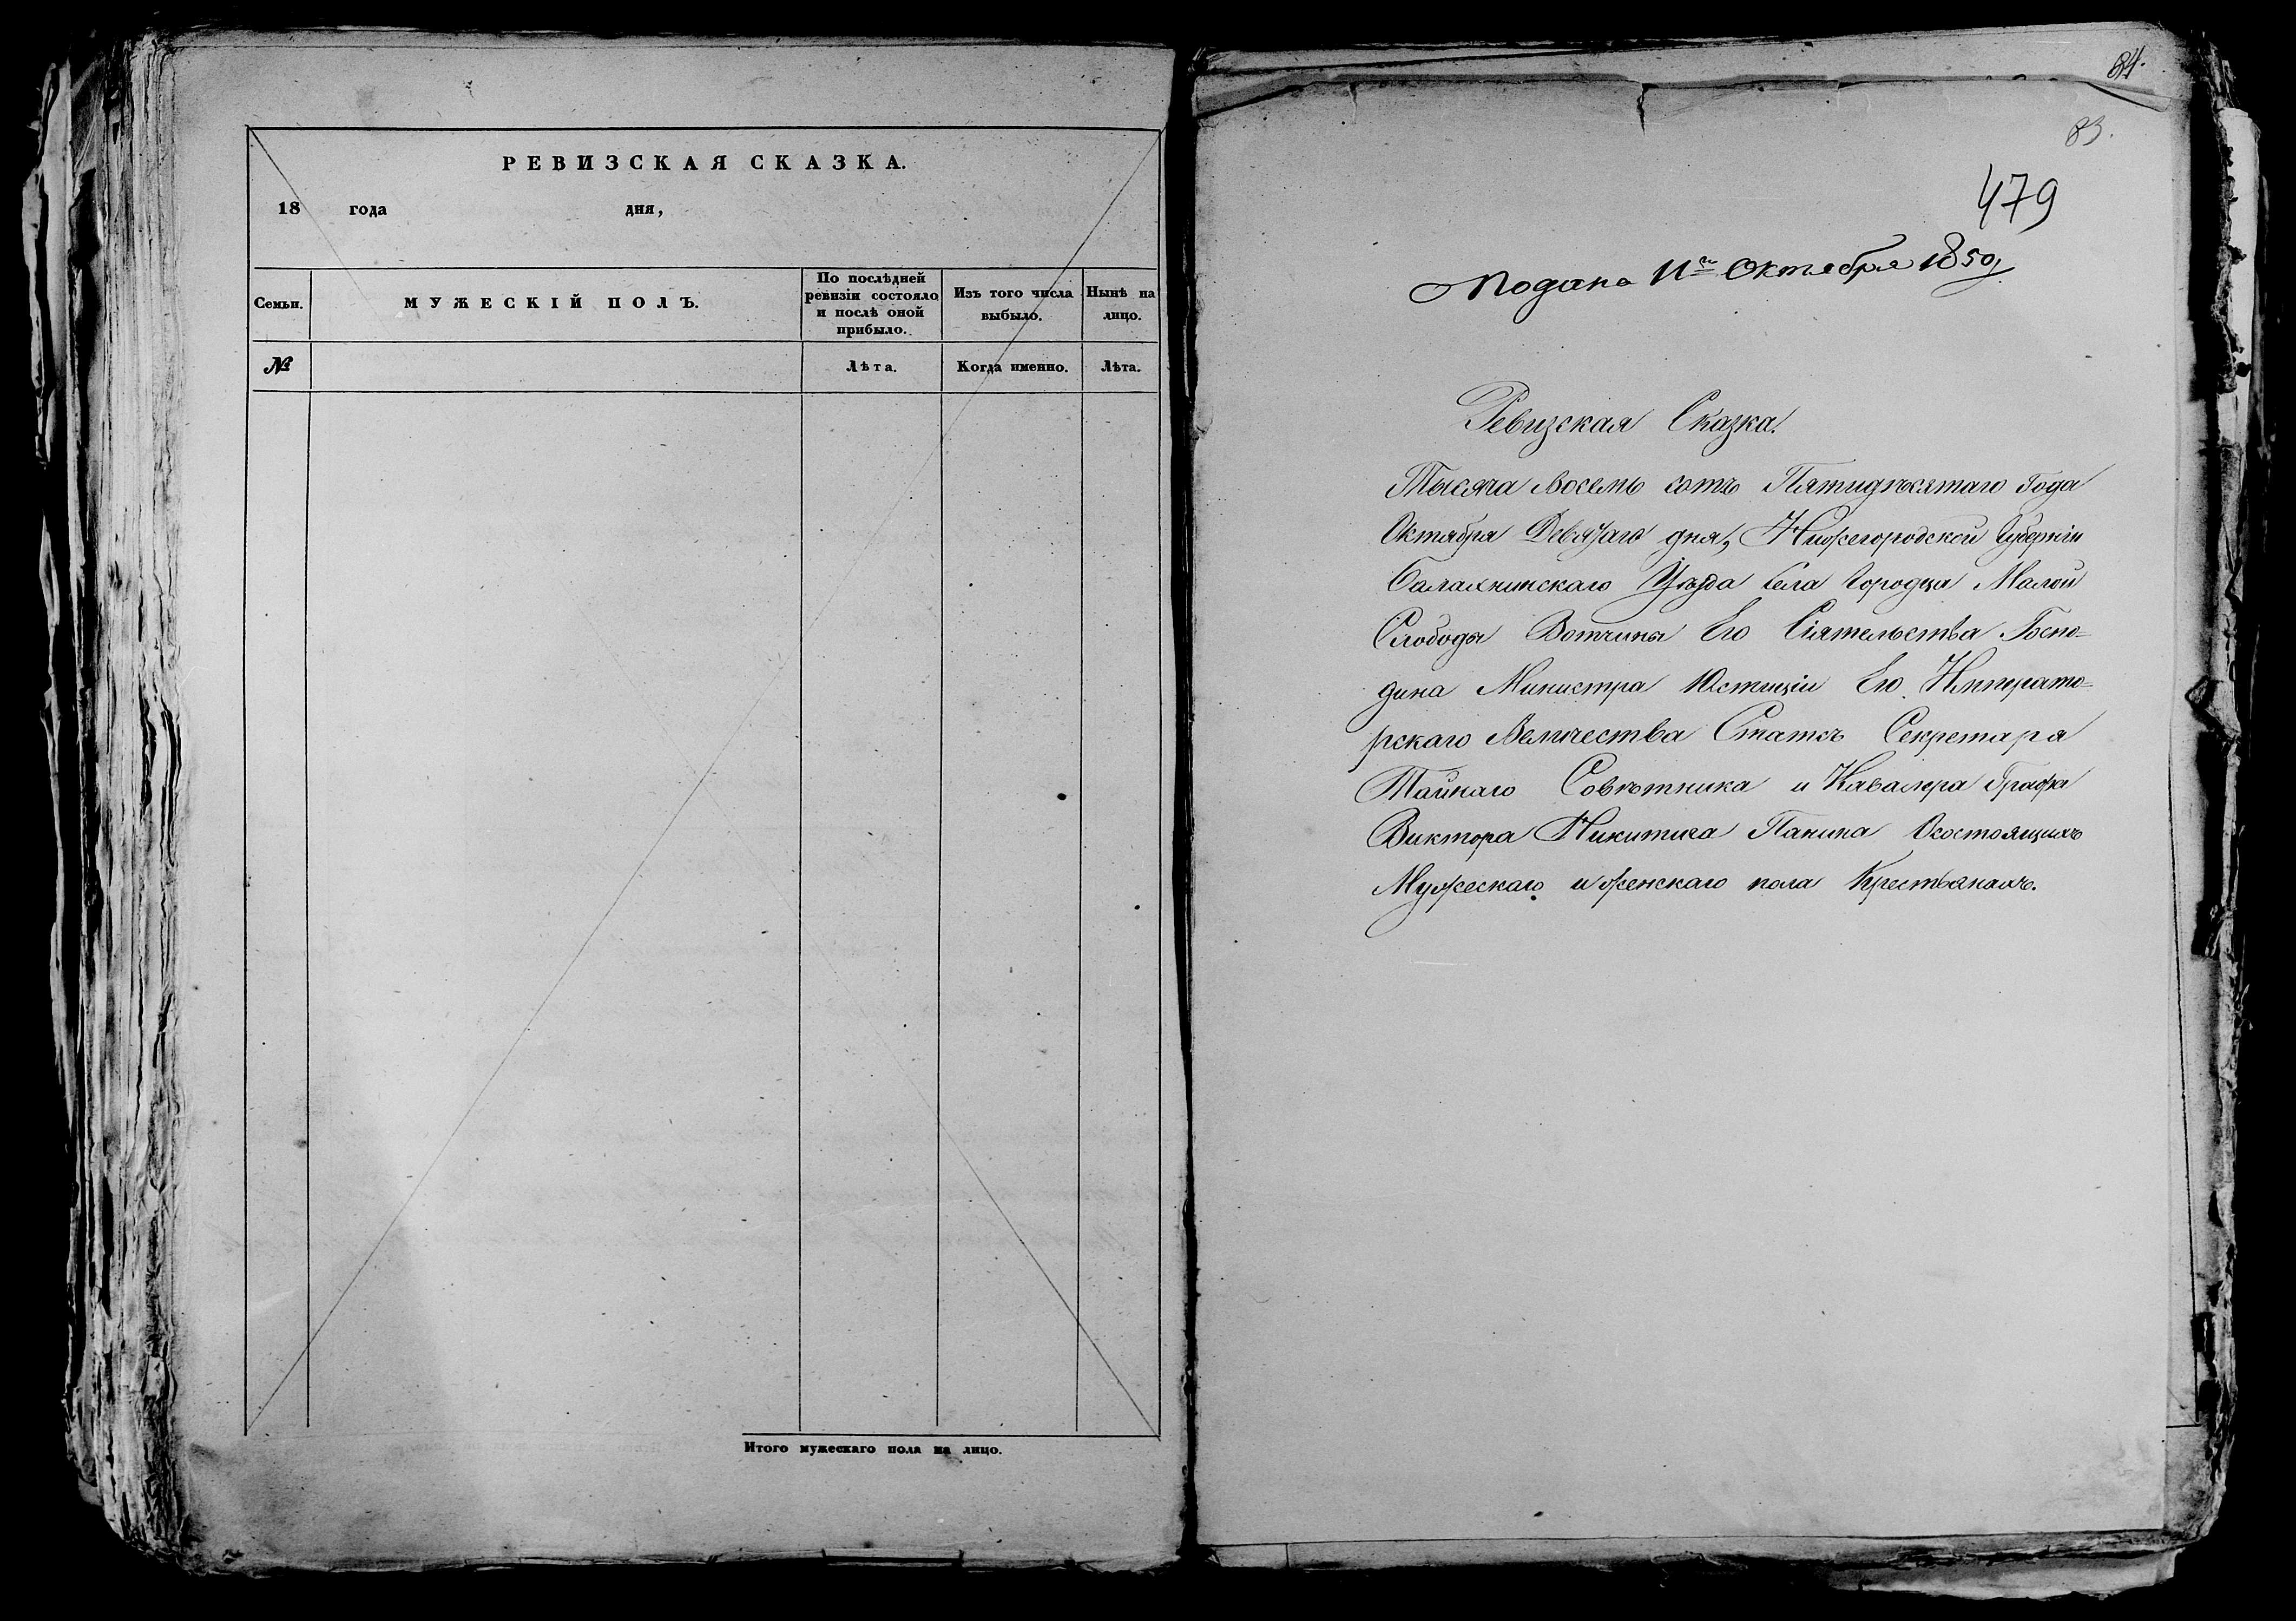 РЕВИЗСКАЯ СКАЗКА.
18 года дня,
Семьи.
МУЖЕСКІЙ ПОЛЪ.
По послѣдней
ревизіи состояло
и послѣ оной
прибыло.
Изъ того числа
выбыло.
Нынѣ на
лицо.
№
Лѣта.
Когда именно.
Лѣта.
Итого мужескаго пола на лицо.
84.
83.
479
Подана 11го Октября 1850
Ревизская Сказка.
Тысяча восемь сотъ Пятидѣсятаго Года
Октября Девятаго дня, Нижегородской Губерніи
Балахнинскаго Уѣзда Села Городца Малой
Слободы Вотчины Его Сіятельства Госпо=
дина Министра Юстиціи Его Императо=
рскаго Величества Статсъ Секретаря
Тайнаго Совѣтника и Кавалера Графа
Виктора Никитича Панина Осостоящихъ
Мужескаго и женскаго пола Крестьянахъ.